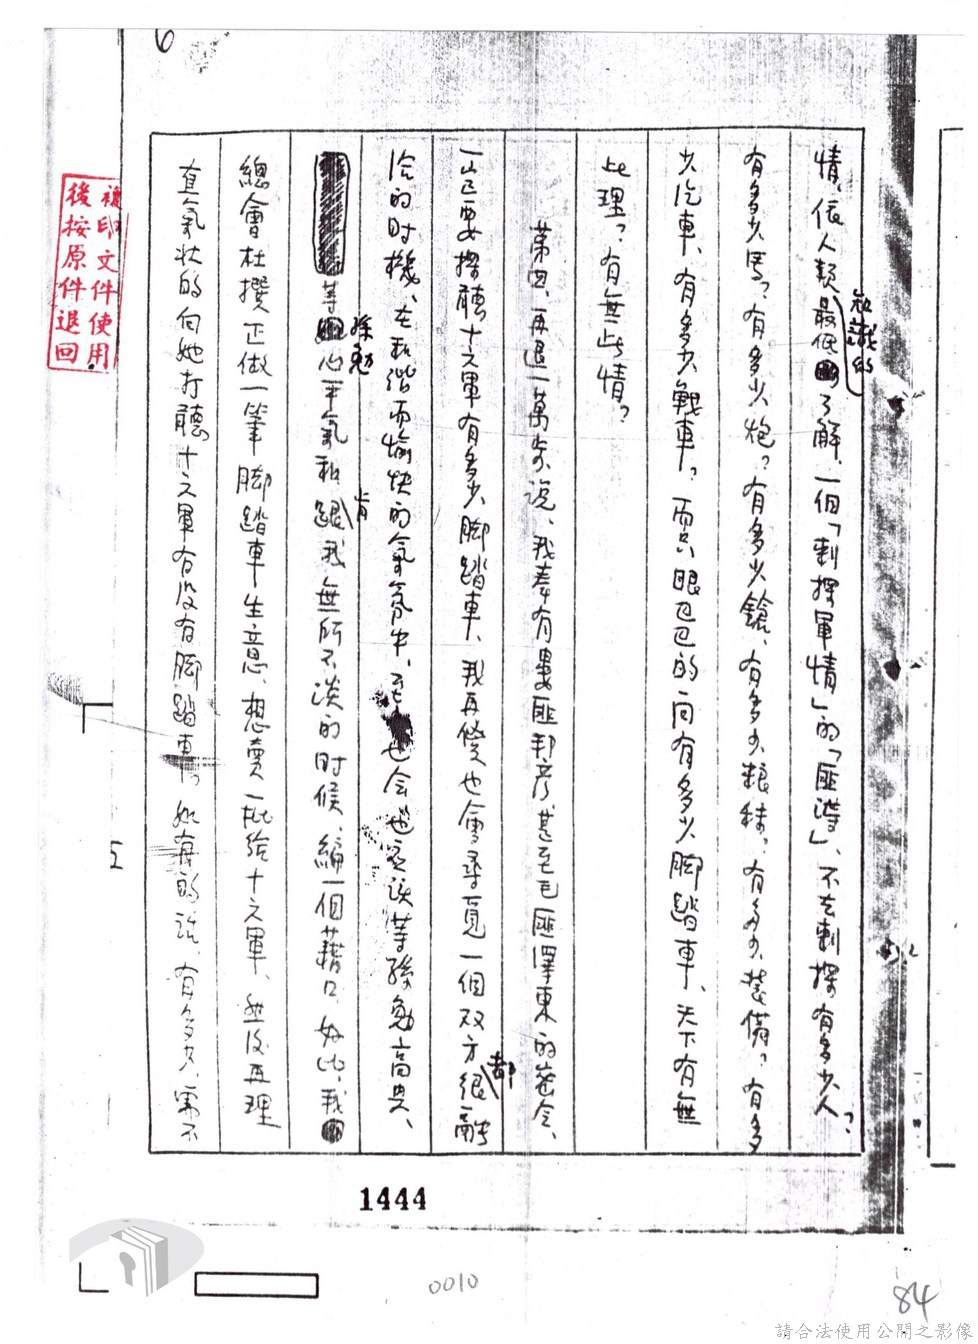 6
情、依人類最低知識的了解、一個「刺探軍情」的「匪諜」、不去刺探有多少人？、
有多少馬？、有多少炮？有多少鎗、有多少粮秣？、有多少裝備？、有多
少汽車、有多少戰車？、而只眼巴巴的一向有多少脚踏車、天下有無
此理？、有無此情？
第四、再退一萬步說、我奉有婁匪邦彥甚至毛匪澤東的密令、
一定要探聽十六軍有多少脚踏車、我再儍也會尋覓一個双方都很融
洽的时機、在和谐而愉快的氣氛中、至也会也应該等孫勉高興、
等孫勉心平氣和肯跟我無所不談的时候、編一個藉口、好比、我
總會杜撰正做一筆脚踏車生意、想賣一批給十六軍、然後再理
直氣壯的向她打聽十六軍有沒有脚踏車？、如有的話、有多少、需不
複印文件使用
後按原件退回
1444
0010
84
請合法使用公開之影像